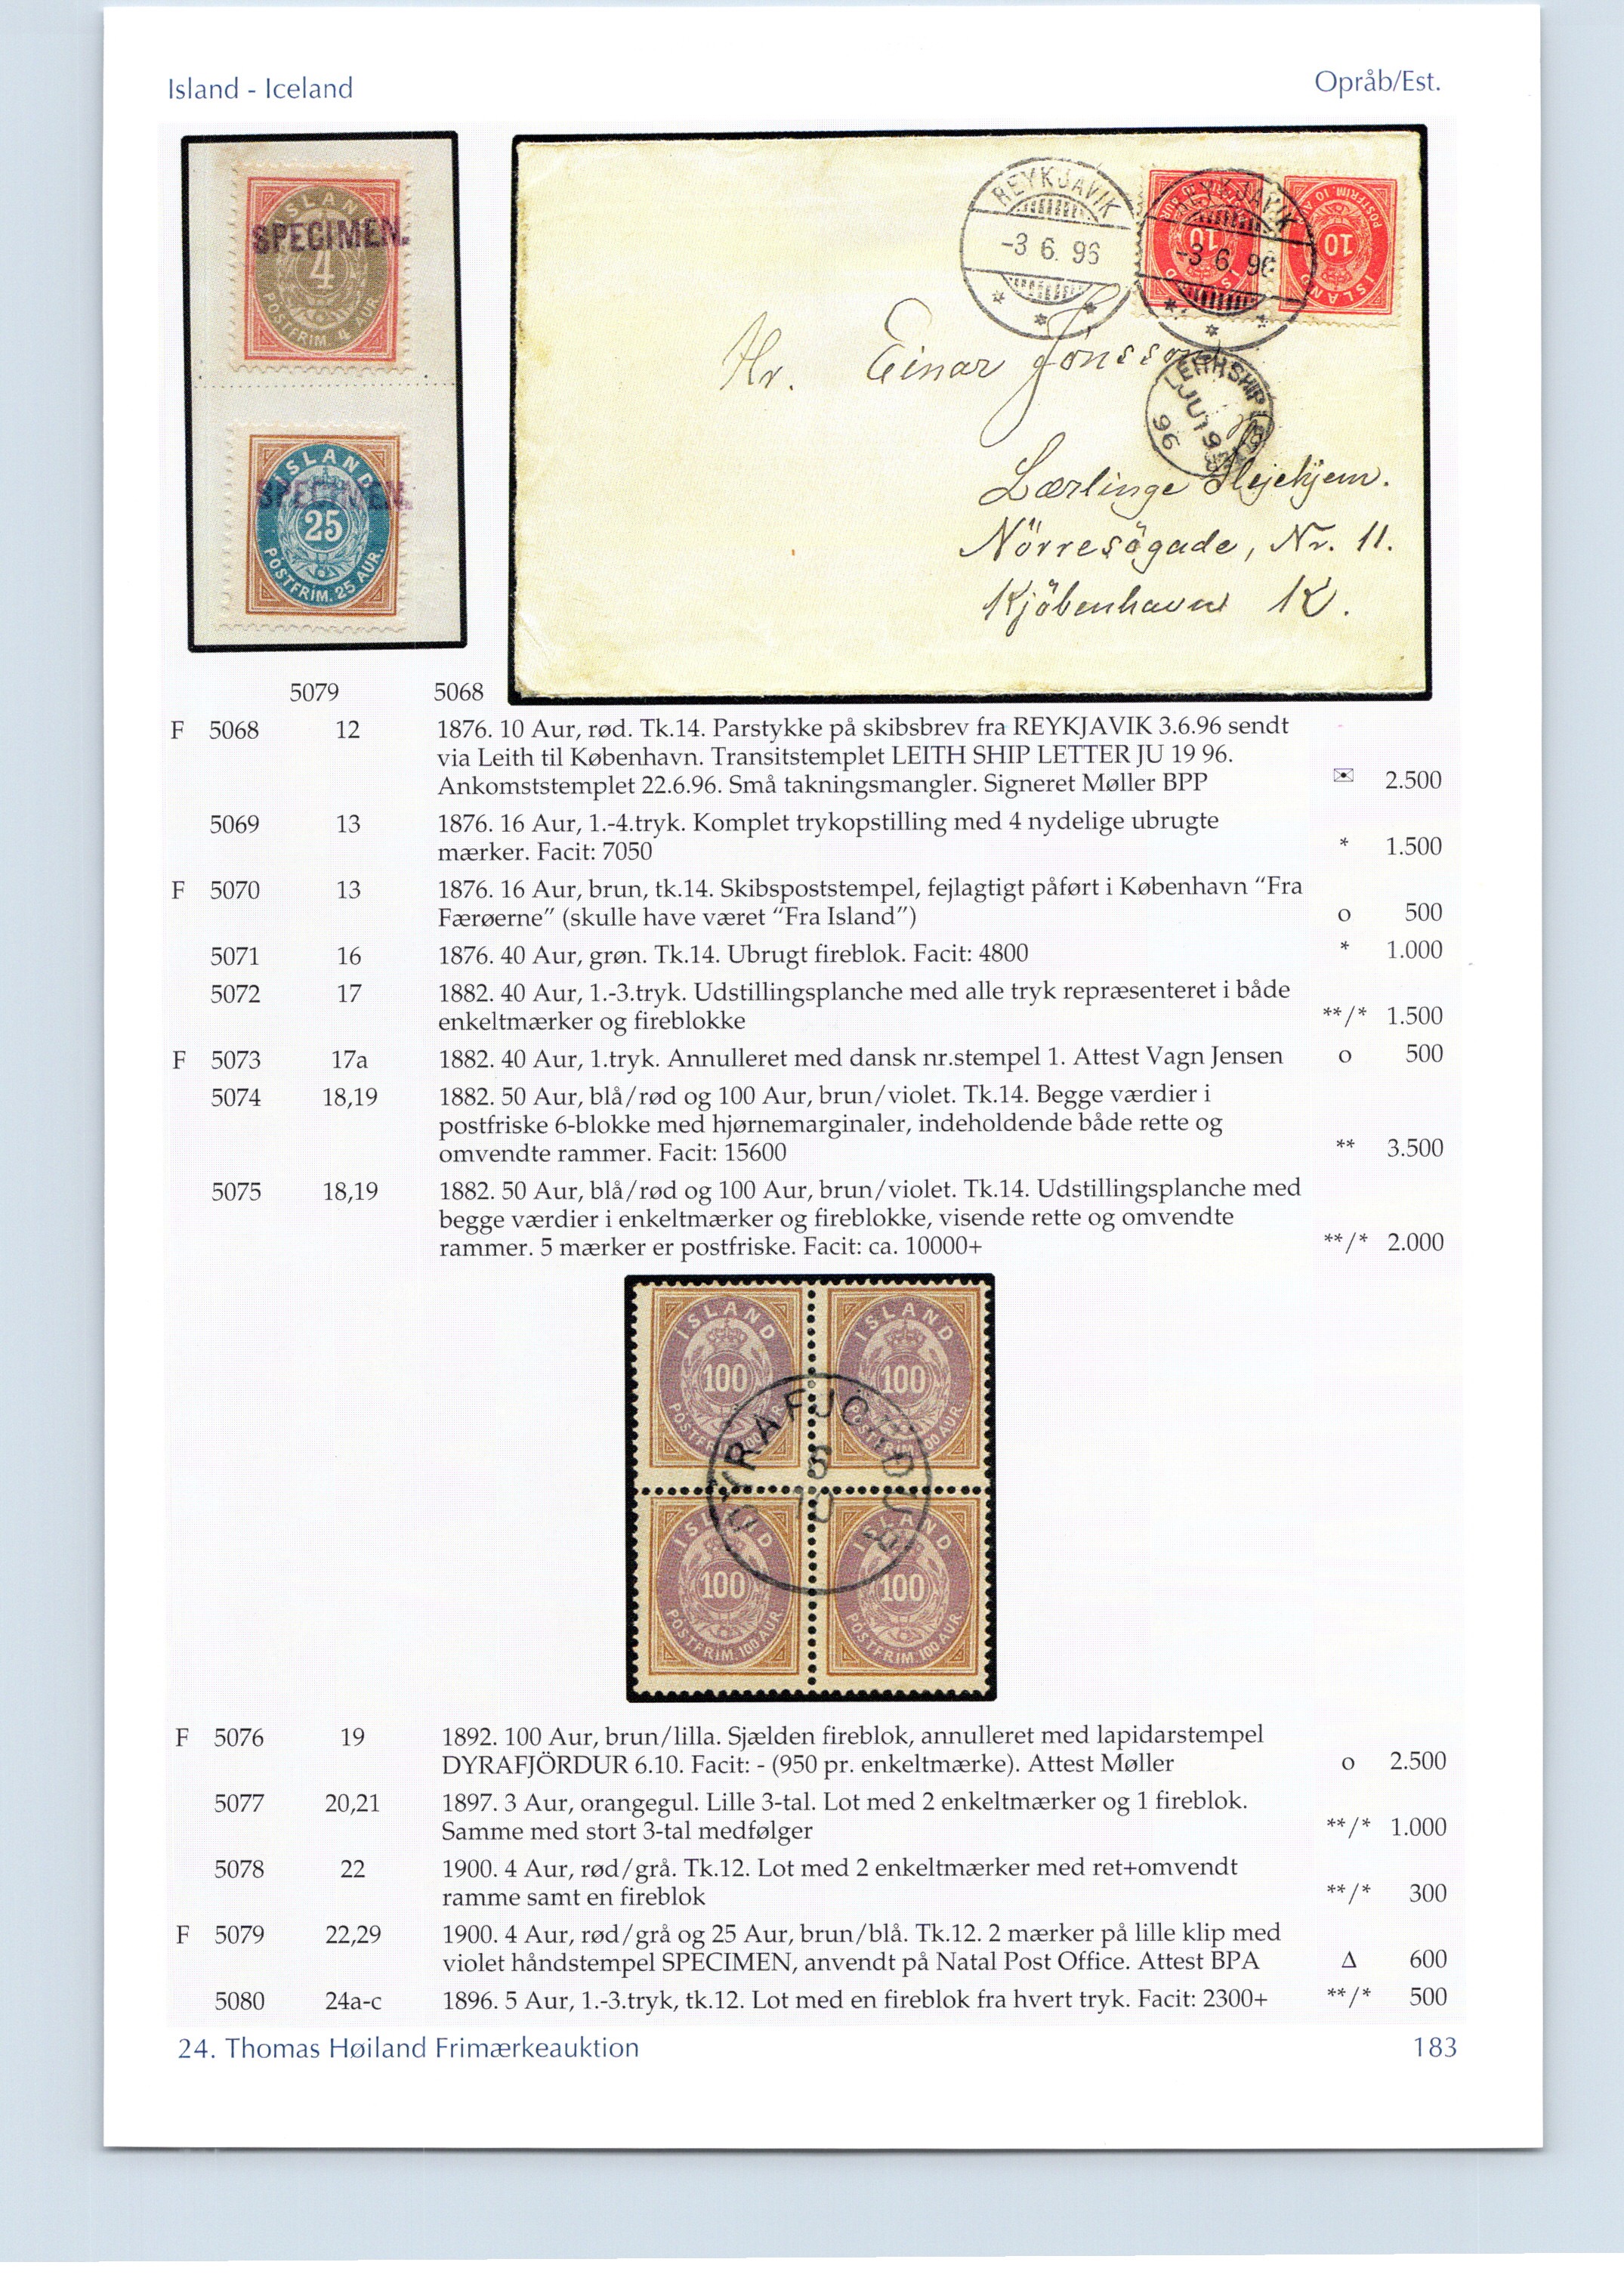 Island - Iceland
Opråb/Est.
ISLAND
SPECIMEN.
4
POSTFRIM. 4 AUR.
ISLAND
SPECIMEN.
25
POSTFRIM. 25 AUR.
REYKJAVIK
-3 6. 96
REYKJAVIK
-3 6. 96
10
ISLAND
POSTFRIM. 10 AUR
10
ISLAND
Hr. Einar Jónsson
LEITH SHIP
JU 19
96
Lærlinge Plejehjem.
Nörresögade, Nr. 11.
Kjöbenhavn K.
5079 5068
F 5068 12 1876. 10 Aur, rød. Tk.14. Parstykke på skibsbrev fra REYKJAVIK 3.6.96 sendt
via Leith til København. Transitstemplet LEITH SHIP LETTER JU 19 96.
Ankomststemplet 22.6.96. Små takningsmangler. Signeret Møller BPP ✉ 2.500
5069 13 1876. 16 Aur, 1.-4.tryk. Komplet trykopstilling med 4 nydelige ubrugte
mærker. Facit: 7050 * 1.500
F 5070 13 1876. 16 Aur, brun, tk.14. Skibspoststempel, fejlagtigt påført i København "Fra
Færøerne" (skulle have været "Fra Island") o 500
5071 16 1876. 40 Aur, grøn. Tk.14. Ubrugt fireblok. Facit: 4800 * 1.000
5072 17 1882. 40 Aur, 1.-3.tryk. Udstillingsplanche med alle tryk repræsenteret i både
enkeltmærker og fireblokke **/* 1.500
F 5073 17a 1882. 40 Aur, 1.tryk. Annulleret med dansk nr.stempel 1. Attest Vagn Jensen o 500
5074 18,19 1882. 50 Aur, blå/rød og 100 Aur, brun/violet. Tk.14. Begge værdier i
postfriske 6-blokke med hjørnemarginaler, indeholdende både rette og
omvendte rammer. Facit: 15600 ** 3.500
5075 18,19 1882. 50 Aur, blå/rød og 100 Aur, brun/violet. Tk.14. Udstillingsplanche med
begge værdier i enkeltmærker og fireblokke, visende rette og omvendte
rammer. 5 mærker er postfriske. Facit: ca. 10000+ **/* 2.000
ISLAND ISLAND
100 100
DYRAFJÖRDUR
6
10
ISLAND ISLAND
100 100
POSTFRIM. 100 AUR. POSTFRIM. 100 AUR.
F 5076 19 1892. 100 Aur, brun/lilla. Sjælden fireblok, annulleret med lapidarstempel
DYRAFJÖRDUR 6.10. Facit: - (950 pr. enkeltmærke). Attest Møller o 2.500
5077 20,21 1897. 3 Aur, orangegul. Lille 3-tal. Lot med 2 enkeltmærker og 1 fireblok.
Samme med stort 3-tal medfølger **/* 1.000
5078 22 1900. 4 Aur, rød/grå. Tk.12. Lot med 2 enkeltmærker med ret+omvendt
ramme samt en fireblok **/* 300
F 5079 22,29 1900. 4 Aur, rød/grå og 25 Aur, brun/blå. Tk.12. 2 mærker på lille klip med
violet håndstempel SPECIMEN, anvendt på Natal Post Office. Attest BPA Δ 600
5080 24a-c 1896. 5 Aur, 1.-3.tryk, tk.12. Lot med en fireblok fra hvert tryk. Facit: 2300+ **/* 500
24. Thomas Høiland Frimærkeauktion 183